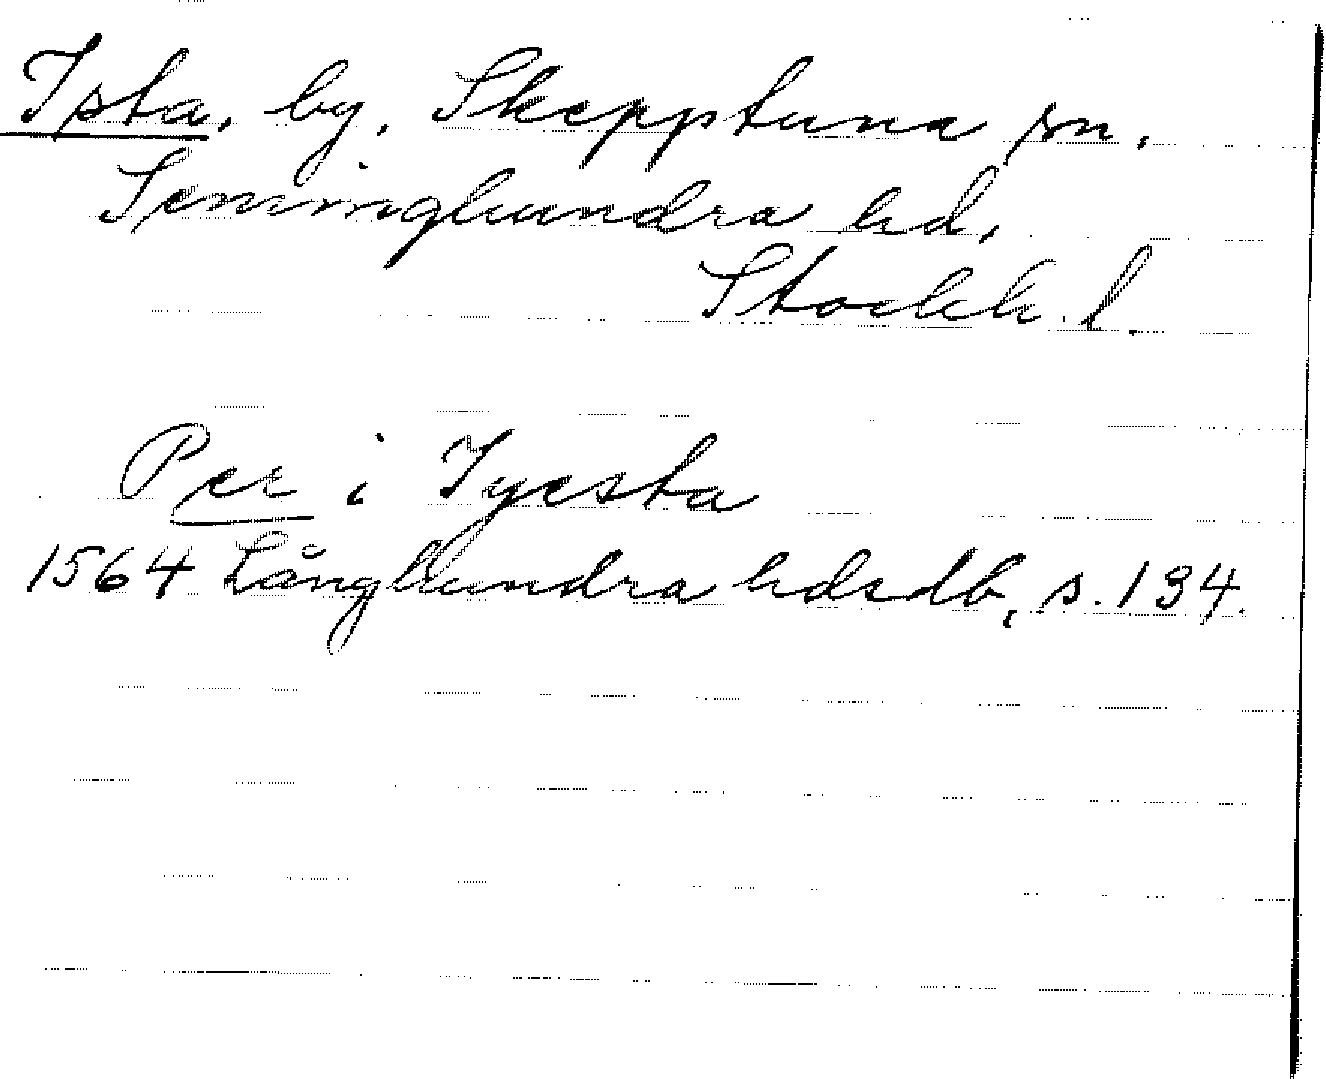 Ista, by, Skepptuna sn,
Seminghundra hd,
Stockh. l.
Per i Iyesta
1564 Långhundra hdsdb, s. 194.